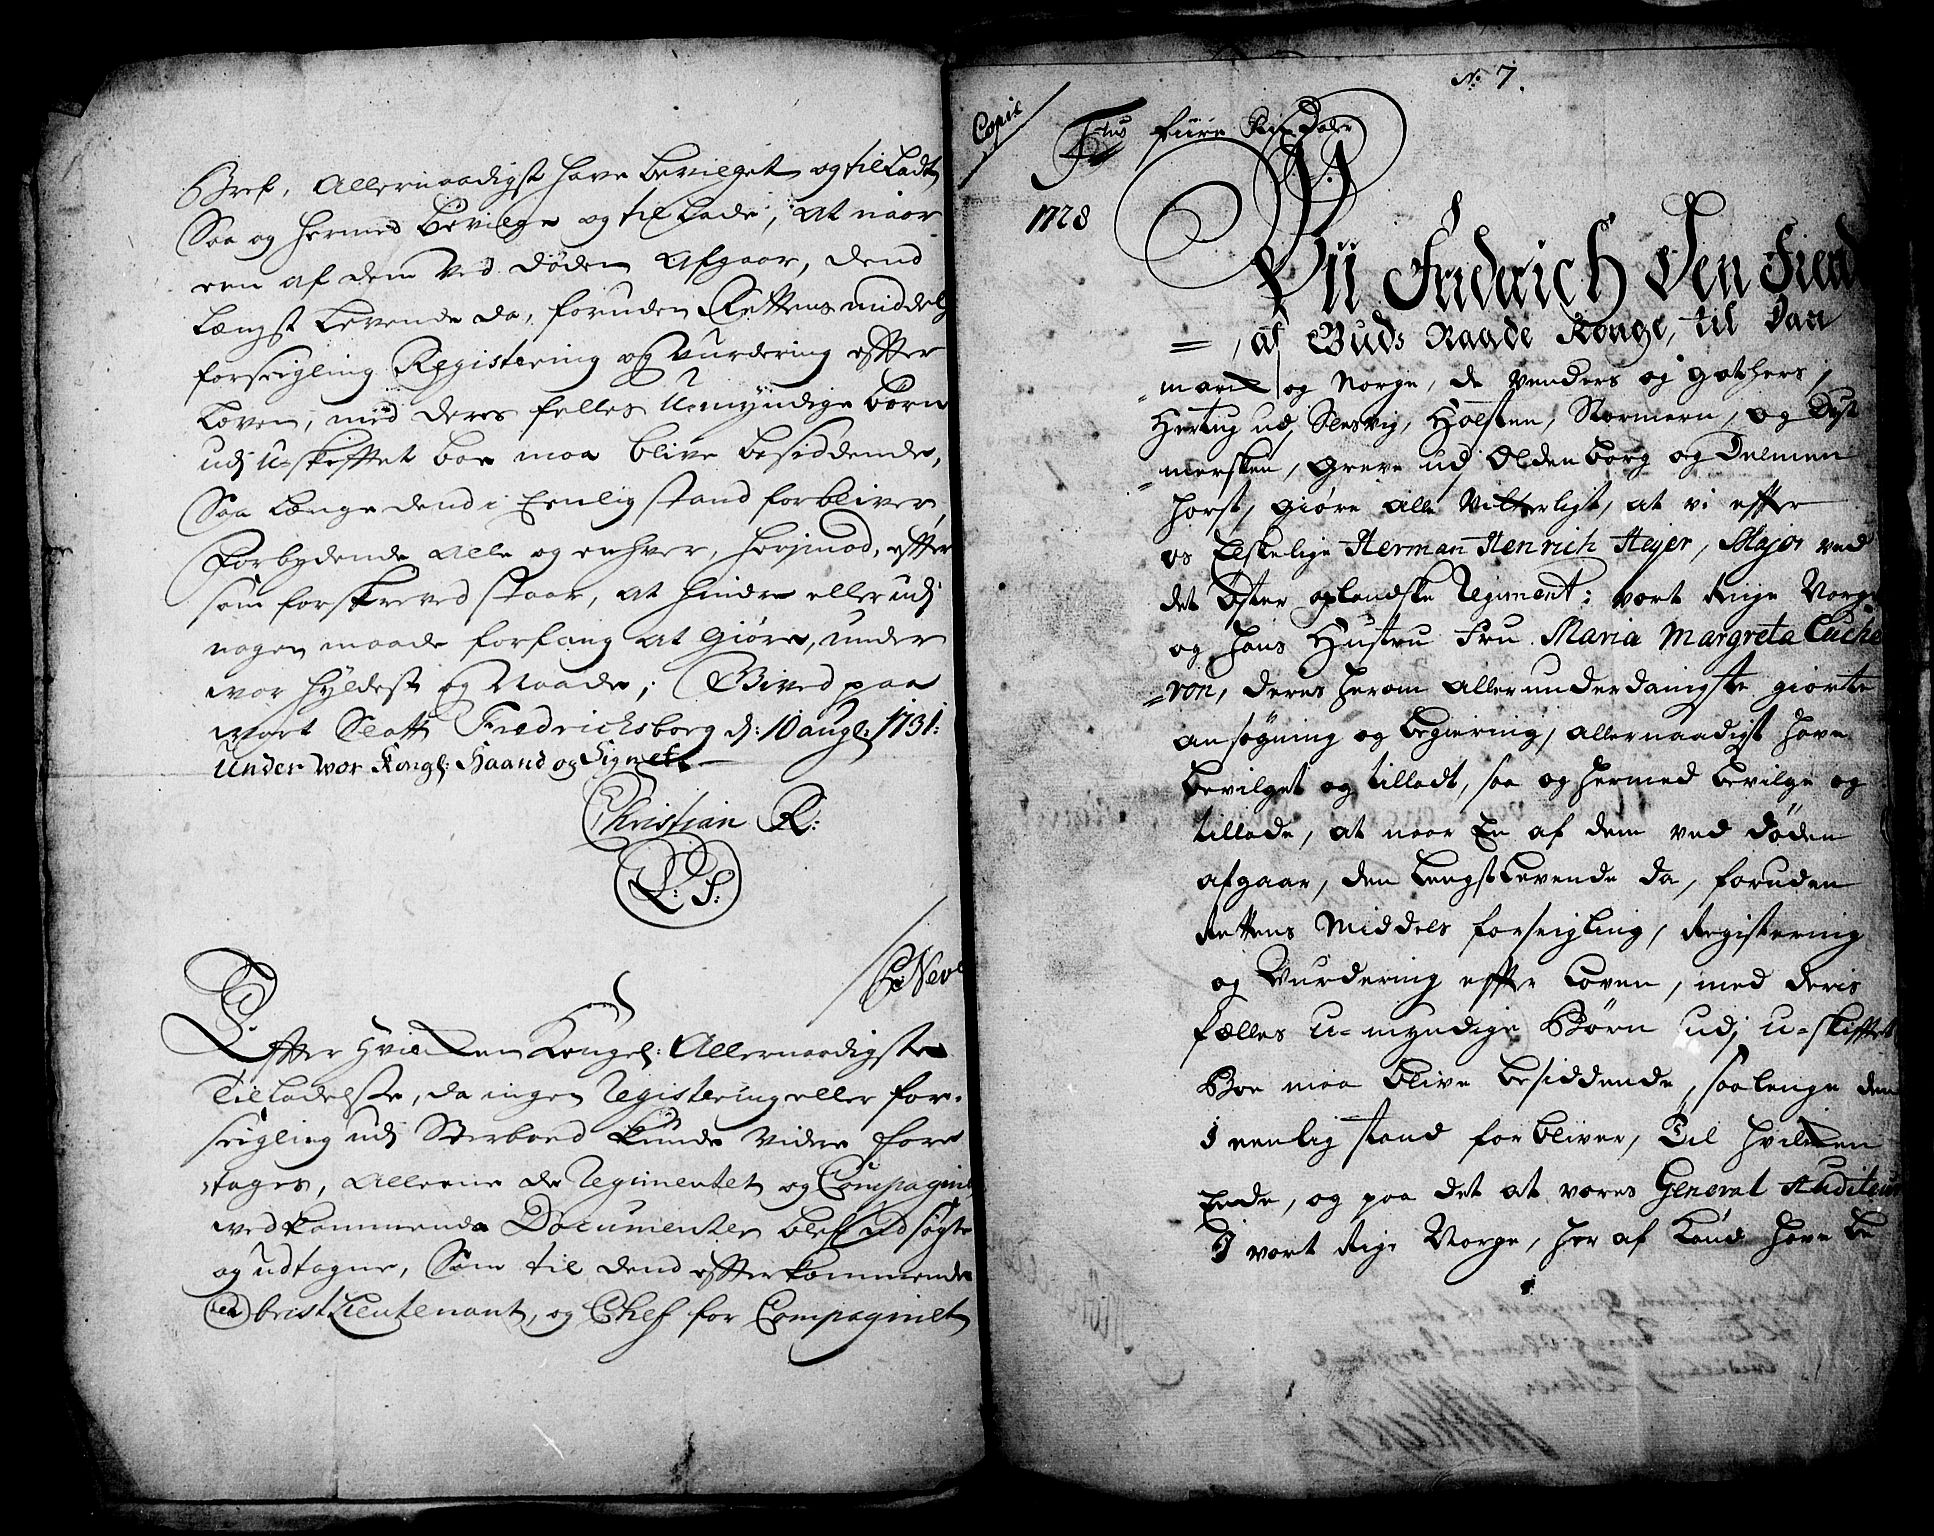 Bref, Allernaadigst have bevilget og tilladt
Saa og hermed bevilge og tillade, at naar
een af dem ved døden afgaar, dend
længst levende da, foruden Rettens middels
forseigling Registering og Vurdering efter
Loven, med deres felles Umyndige børn
udj u-skifftet boe maa blive besiddende,
Saa længe dend i Eenlig stand forbliver,
Forbydende alle og enhver, herjmod, efter
som forskrevед staar, at hindre eller udj
nogen maade forfang at giøre, under
vor hyldest og Naade; Givet paa
vort Slott Fredrichsborg d: 10 augl: 1731:
Under vor Kongl: Haand og Signet.
Christian R:
L: S:
Effter hvilcken Kongel: Allernaadigste
Tilladelse, da ingen Registering eller for-
seigling udj Sterboed kunde videre fore
tages, allene de Regimentet og Compagniet
vedkommende Documenter blef udsøgte
og udtagne, Som til dend efterkommende
Obristlieutenant, og Chef for Compagniet
No 7.
Copie
fiire Rix Daler
1728
Vii Friderich Den Fierde
af Guds Naade Konge, til Dan
marck og Norge, de Venders og Gothers,
Hertug udj Slesvig, Holsten, Stormarn, og Dyt
mersken, Greve udj Oldenborg og Delmen
horst, Giøre alle Vitterligt, at vi efter
os Elskelige Herman Henrich Heyer, Major ved
det Øster oplandske Regiment i vort Rige Norge
og hans Hustru Fru Maria Margreta Cuche
ron, deres herom allerunderdanigste giorte
ansøgning og begiering, allernaadigst have
bevilget og tilladt, saa og hermed bevilge og
tillade, at naar En af dem ved døden
afgaar, den lengstlevende da, foruden
Rettens Middels forseigling, Registering
og Vurdering effter Loven, med deris
fælles u-myndige Børn udj u-skifftet
Boe maa blive besiddende, saalenge den
I eenlig stand forbliver, Til hvilcken
Ende, og paa det at vores General Auditeur
I vort Rige Norge, her af kand have be